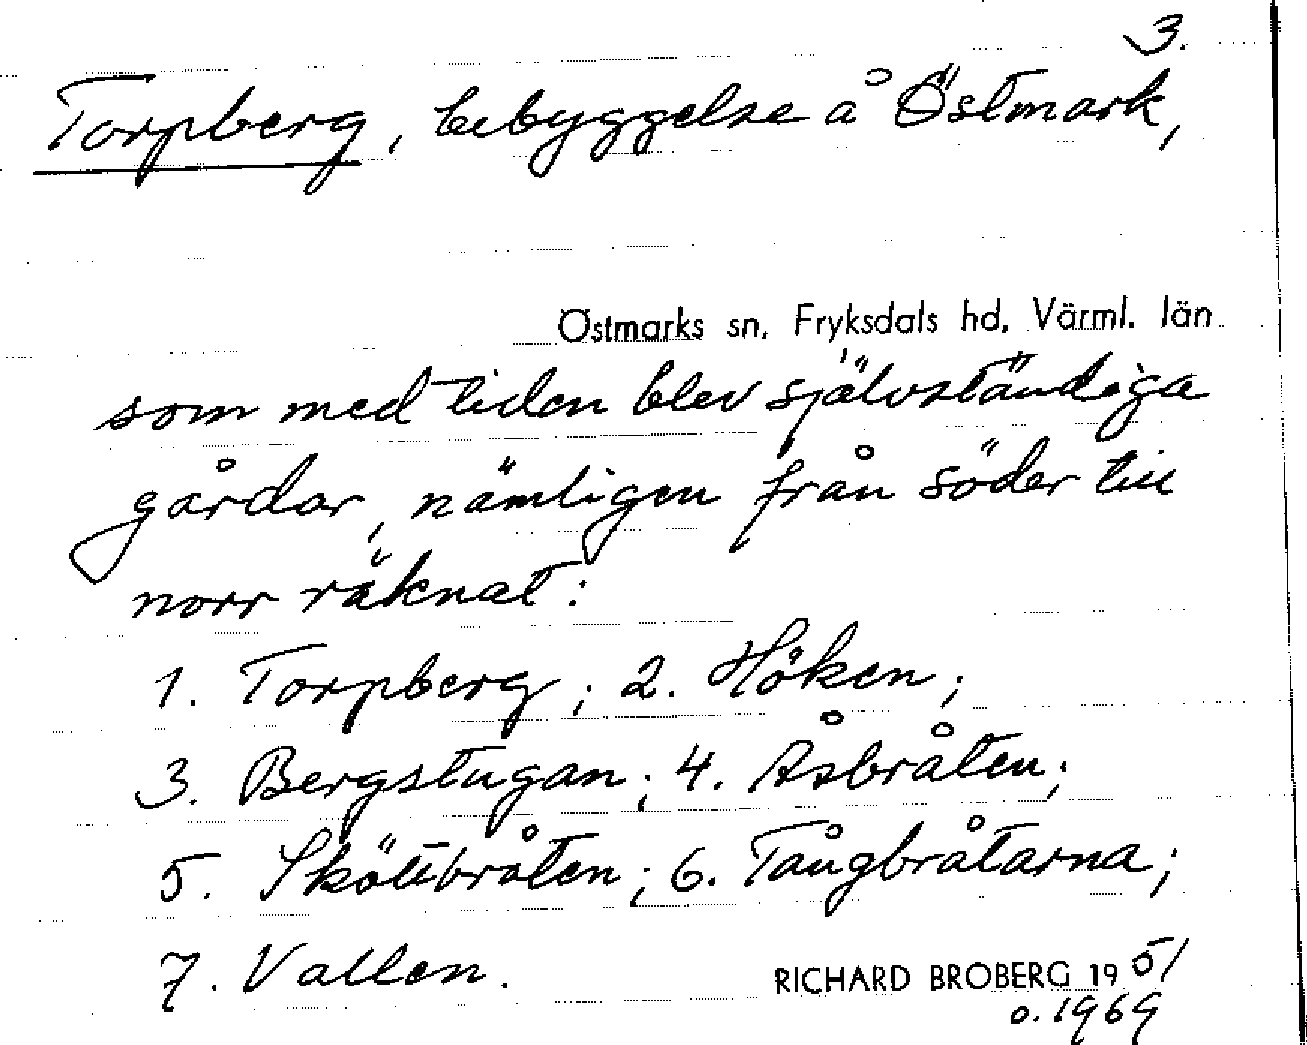 3.
Torpberg, bebyggelse å Östmark,
Östmarks sn, Fryksdals hd, Värml. län
som med tiden blev självständiga
gårdar, nämligen från söder till
norr räknat:
1. Torpberg; 2. Höken;
3. Bergstugan; 4. Åsbråten;
5. Sköttbråten; 6. Tångbråtarna;
7. Vallen.
RICHARD BROBERG 1951
o. 1969